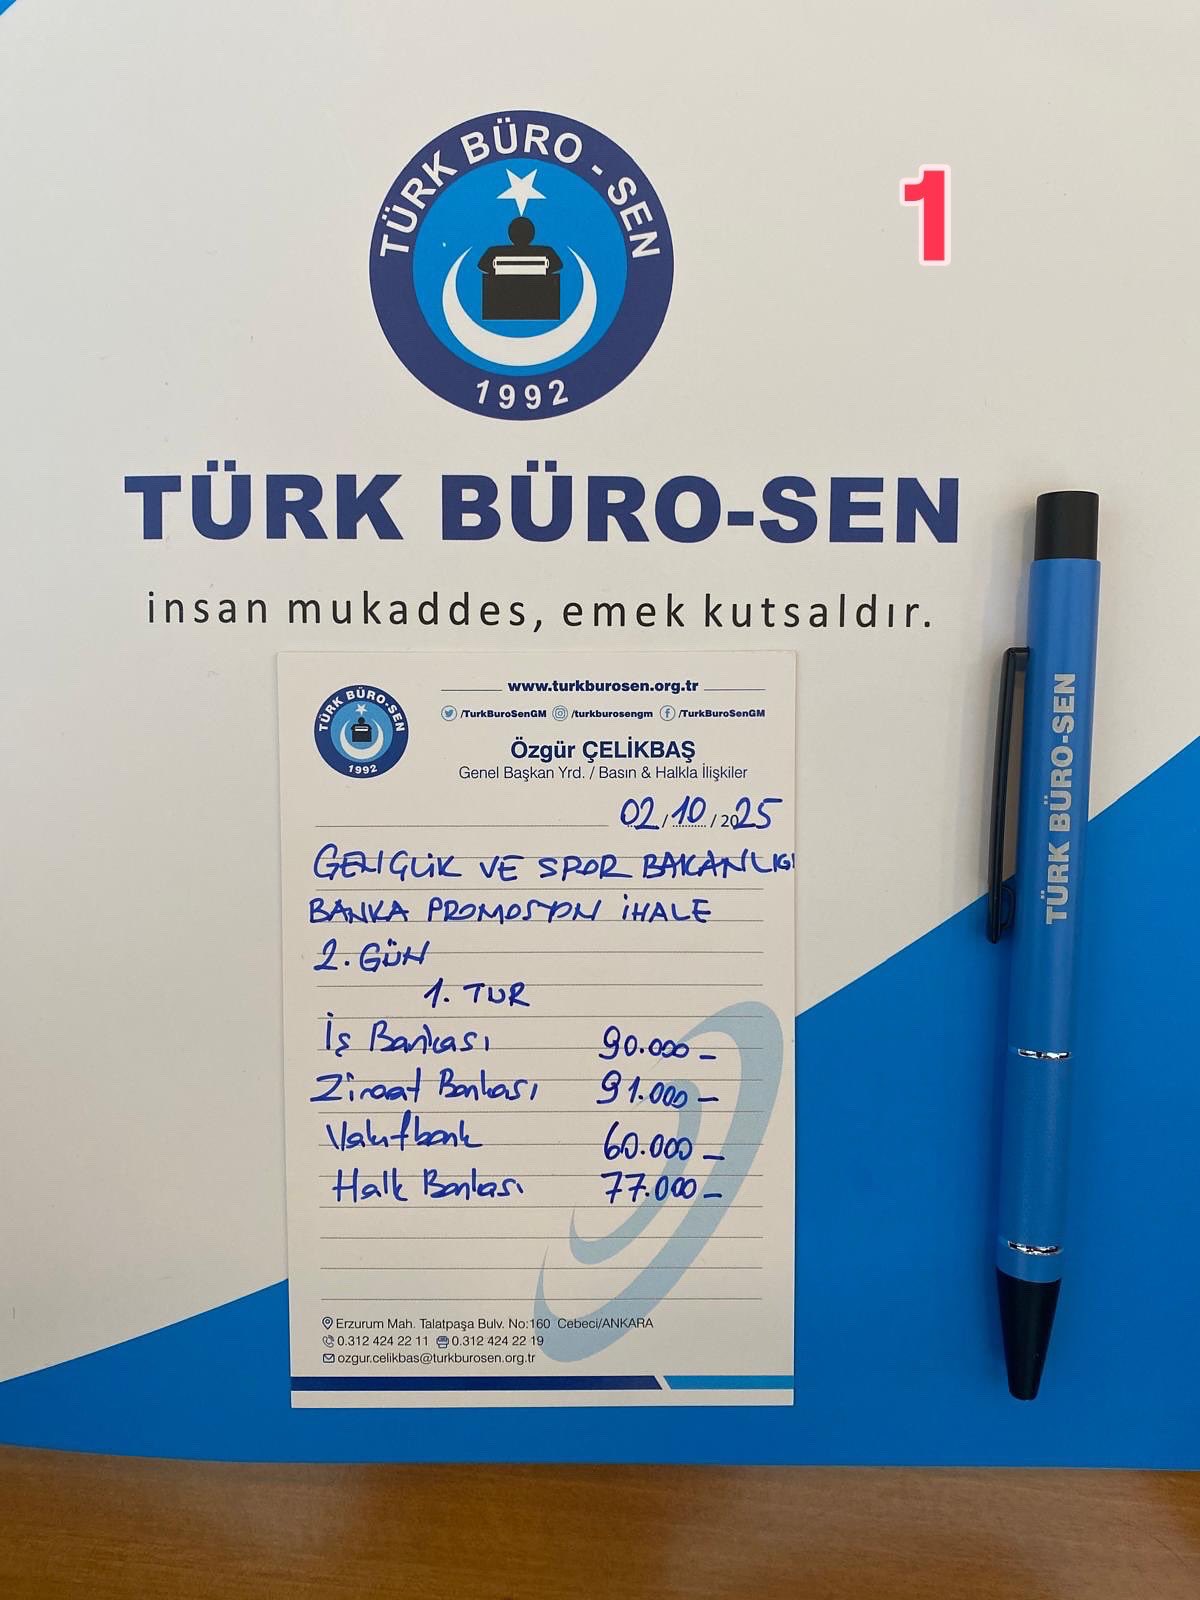 TÜRK BÜRO - SEN
1992
1
TÜRK BÜRO-SEN
insan mukaddes, emek kutsaldır.
TÜRK BÜRO-SEN
TÜRK BÜRO-SEN
1992
www.turkburosen.org.tr
/TurkBuroSenGM /turkburosengm /TurkBuroSenGM
Özgür ÇELİKBAŞ
Genel Başkan Yrd. / Basın & Halkla İlişkiler
02/10/2025
GENÇLİK VE SPOR BAKANLIĞI
BANKA PROMOSYON İHALE
2. GÜN
1. TUR
İş Bankası 90.000-
Ziraat Bankası 91.000-
Vakıfbank 60.000-
Halk Bankası 77.000-
Erzurum Mah. Talatpaşa Bulv. No:160 Cebeci/ANKARA
0.312 424 22 11 0.312 424 22 19
ozgur.celikbas@turkburosen.org.tr